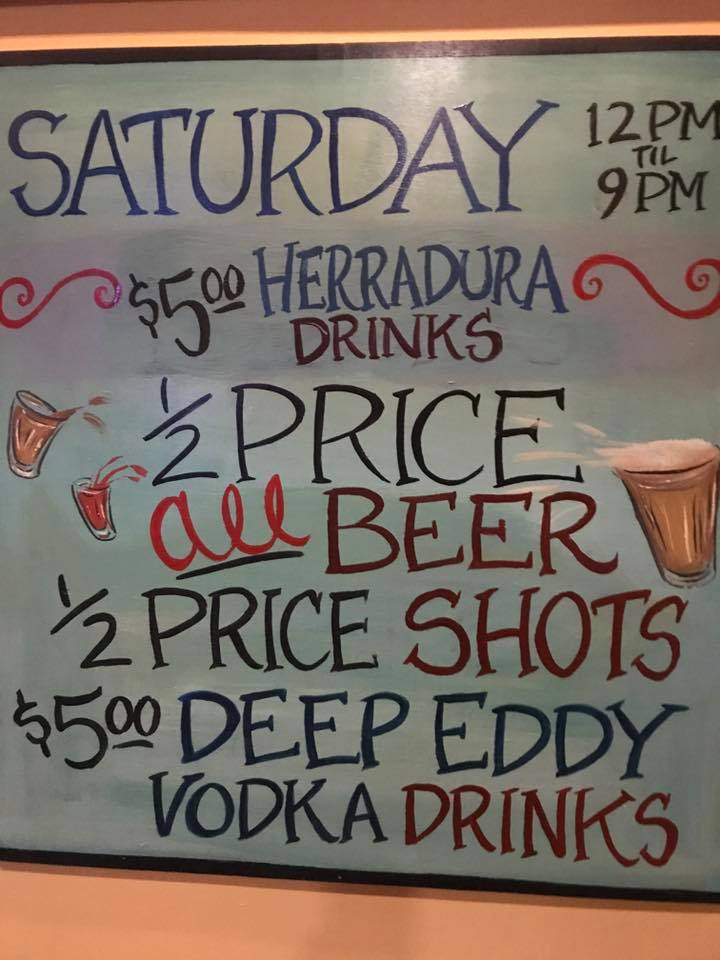 SATURDAY
12PM
TIL
9PM
$5.00 HERRADURA
DRINKS
1/2 PRICE
all BEER
1/2 PRICE SHOTS
$5.00 DEEP EDDY
VODKA DRINKS